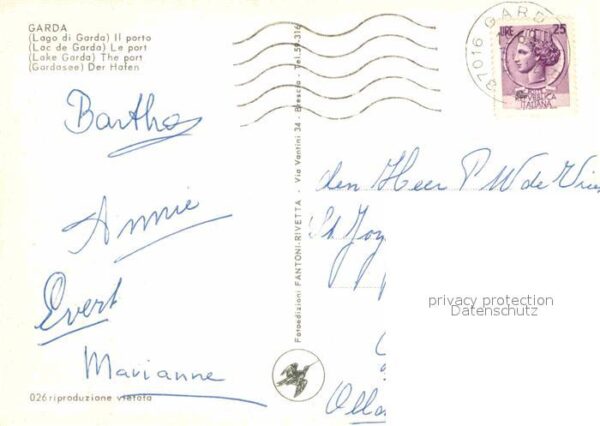 GARDA
(Lago di Garda) Il porto
(Lac de Garda) Le port
(Lake Garda) The port
(Gardasee) Der Hafen
Bartha
Annie
Evert
Marianne
026 riproduzione vietata
Fotoedizioni FANTONI-RIVETTA - Via Vantini 34 - Brescia - Tel. 59-316
37016 GARD
LIRE 25
REPVBBLICA
ITALIANA
den Heer P W de
St
privacy protection
Datenschutz